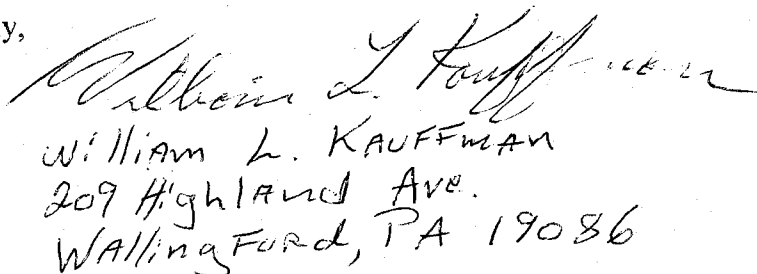 y,
William L. Kauffman
William L. KAUFFMAN
209 Highland Ave.
Wallingford, PA 19086